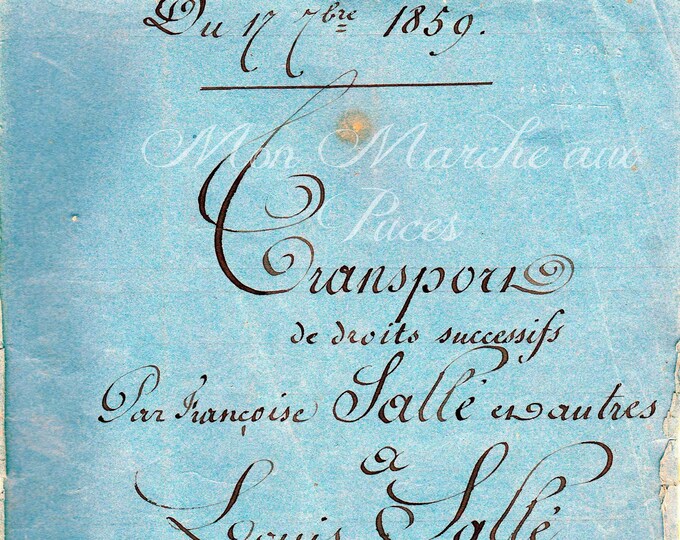 Du 17 7bre 1859.
Mon Marche aux
Puces
Transport
de droits successifs
Par Françoise Sallé et autres
à
Louis Sallé